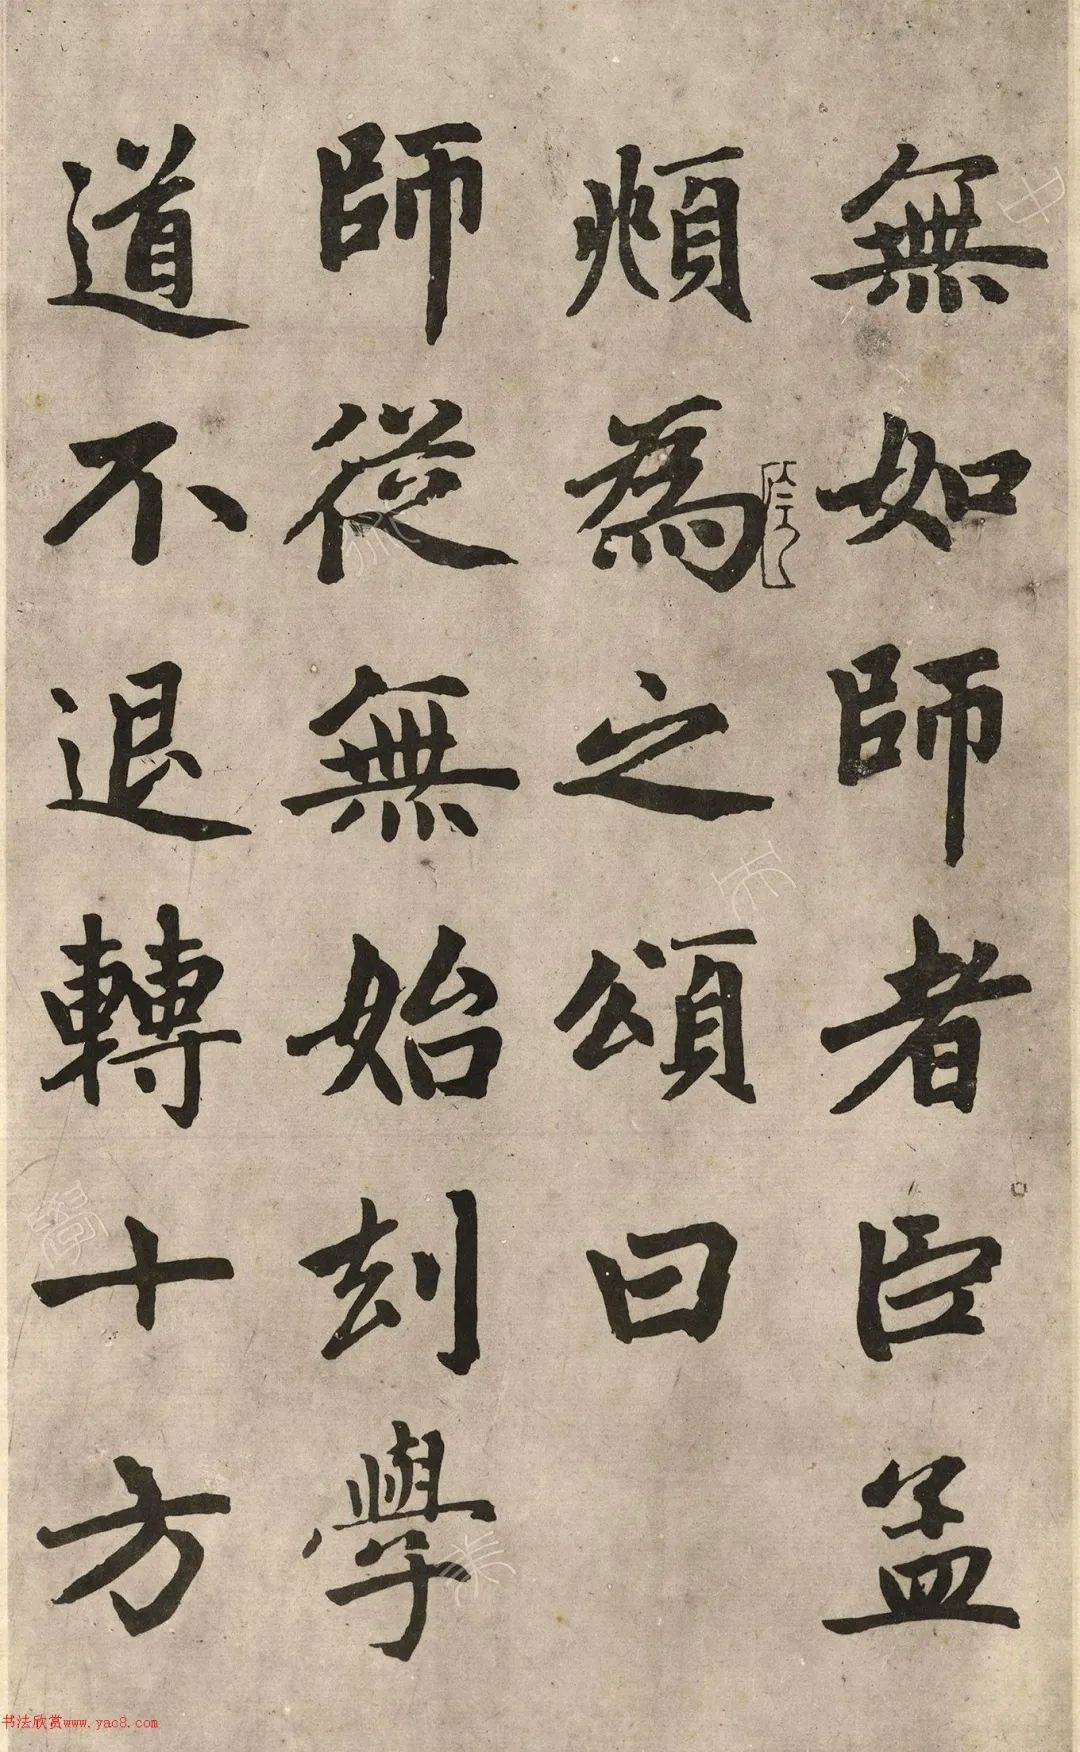 無如師者臣孟
頫為之頌曰
師從無始刦學
道不退轉十方
书法欣赏www.yac8.com